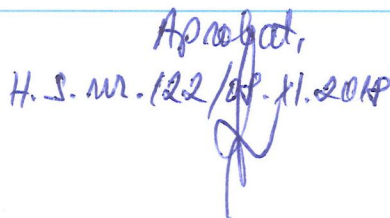 Aprobat,
H. S. nr. 122/08.XI.2018